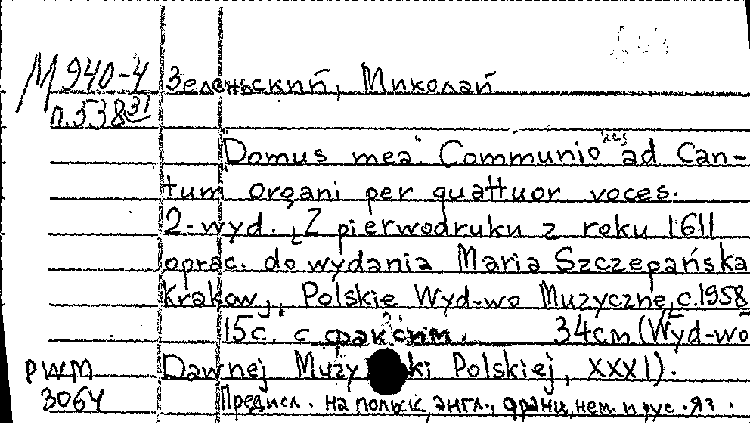 М 940-4 Зеленьский, Миколай
п.538 31
"Domus mea" Communiones ad Can-
tum organi per quattuor voces.
2-wyd. Z pierwodruku z roku 1611
oprac. do wydania Maria Szczepańska
Krakow, Polskie Wyd-wo Muzyczne, c.1958
15с. с факсим. 34cm (Wyd-wo
PWM Dawnej Muzyki Polskiej, XXXI).
3064 Предисл. на польск, англ., франц, нем. и рус. яз.